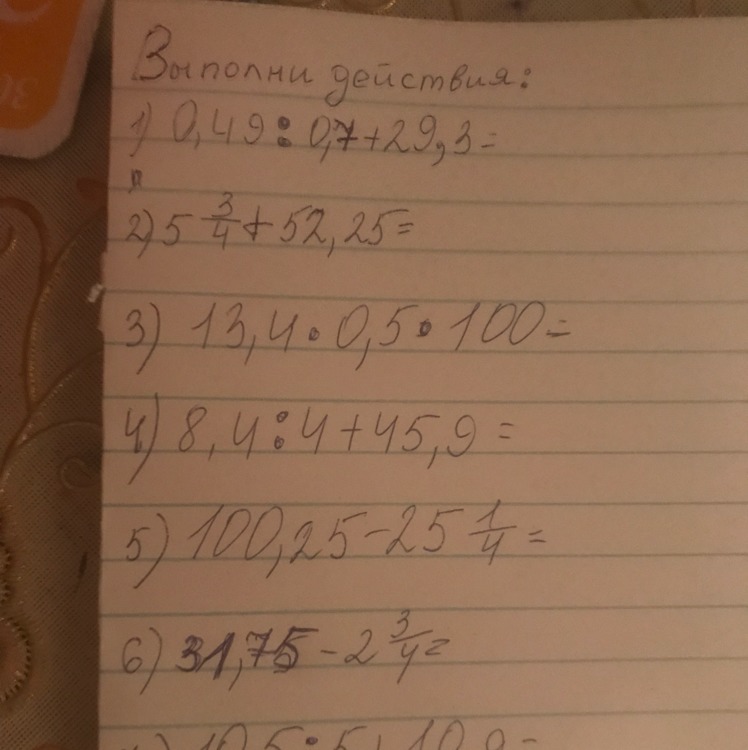 Выполни действия:
1) 0,49 : 0,7 + 29,3 =
2) 5 3/4 + 52,25 =
3) 13,4 · 0,5 · 100 =
4) 8,4 : 4 + 45,9 =
5) 100,25 - 25 1/4 =
6) 31,75 - 2 3/4 =